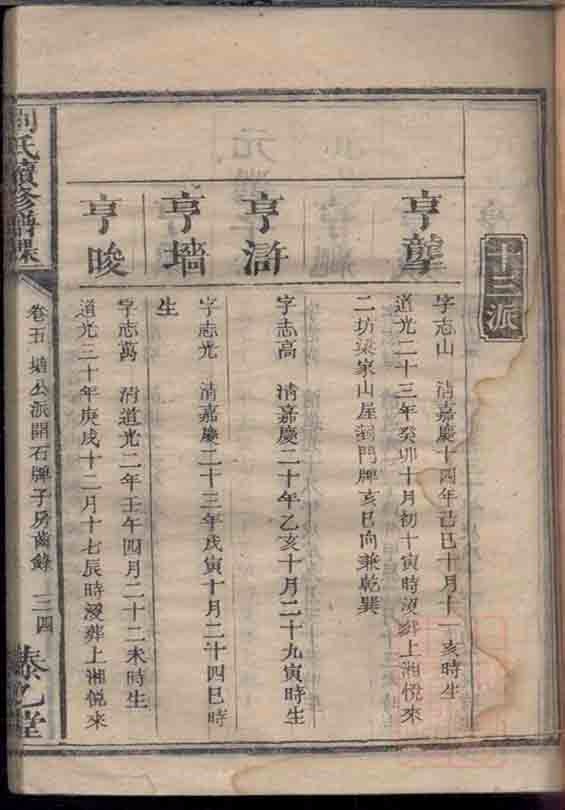 十三派
亨鼟
字志山　清嘉慶十四年己巳十月十一亥時生
道光二十三年癸卯十月初十寅時歿葬上湘悅來
二坊梁家山屋側門牌亥巳向兼乾巽
亨滸
字志高　清嘉慶二十年乙亥十月二十九寅時生
亨墻
字志光　清嘉慶二十三年戊寅十月二十四巳時
生
亨畯
字志萬　清道光二年壬午四月二十二未時生
道光三十年庚戌十二月十七辰時歿葬上湘悅來
劉氏續修譜牒
卷五 塘公派開石牌子房齒錄 二四
泰乙堂